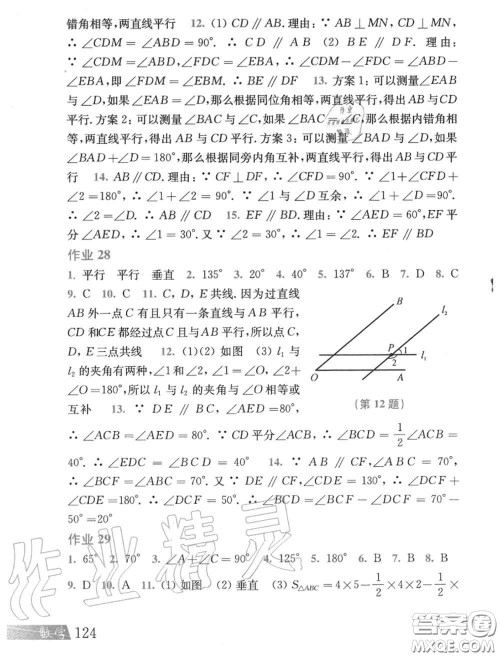 错角相等,两直线平行　12. (1) CD∥AB. 理由: ∵ AB⊥MN, CD⊥MN,
∴ ∠CDM=∠ABD=90°. ∴ CD∥AB　(2) BE∥DF. 理由:
∵ ∠CDM=∠ABD, ∠FDC=∠EBA, ∴ ∠CDM-∠FDC=∠ABD-
∠EBA, 即∠FDM=∠EBM. ∴ BE∥DF　13. 方案1: 可以测量∠EAB
与∠D, 如果∠EAB=∠D, 那么根据同位角相等, 两直线平行, 得出AB与CD
平行. 方案2: 可以测量∠BAC与∠C, 如果∠BAC=∠C, 那么根据内错角相
等, 两直线平行, 得出AB与CD平行. 方案3: 可以测量∠BAD与∠D, 如果
∠BAD+∠D=180°, 那么根据同旁内角互补, 两直线平行, 得出AB与CD平
行　14. AB∥CD. 理由: ∵ CF⊥DF, ∴ ∠CFD=90°. ∵ ∠1+∠CFD+
∠2=180°, ∴ ∠1+∠2=90°. ∵ ∠1与∠D互余, ∴ ∠1+∠D=90°.
∴ ∠2=∠D. ∴ AB∥CD　15. EF∥BD. 理由: ∵ ∠AED=60°, EF平
分∠AED, ∴ ∠1=30°. 又∵ ∠2=30°, ∴ ∠1=∠2. ∴ EF∥BD
作业28
1. 平行　平行　垂直　2. 135°　3. 20°　4. 40°　5. 137°　6. B　7. D　8. C
9. C　10. C　11. C, D, E共线. 因为过直线
AB外一点C有且只有一条直线与AB平行,
CD和CE都经过点C且与AB平行, 所以点C,
D, E三点共线　12. (1)(2)如图　(3) l₁与
l₂的夹角有两种, ∠1和∠2, ∠1=∠O, ∠2+
∠O=180°, 所以l₁与l₂的夹角与∠O相等或
互补　13. ∵ DE∥BC, ∠AED=80°,
B
l₂
P
1
2
l₁
O
A
(第12题)
∴ ∠ACB=∠AED=80°. ∵ CD平分∠ACB, ∴ ∠BCD=1/2∠ACB=
40°. ∴ ∠EDC=∠BCD=40°　14. ∵ AB∥CF, ∠ABC=70°,
∴ ∠BCF=∠ABC=70°. 又∵ DE∥CF, ∠CDE=130°, ∴ ∠DCF+
∠CDE=180°. ∴ ∠DCF=50°. ∴ ∠BCD=∠BCF-∠DCF=70°-
50°=20°
作业29
1. 65°　2. 70°　3. ∠A+∠C=90°　4. 125°　5. 180°　6. B　7. B　8. B
9. D　10. A　11. (1)如图　(2)垂直　(3) S△ABC=4×5-1/2×4×2-1/2×
数学 124
作业精灵
答案圈
MXQE.COM